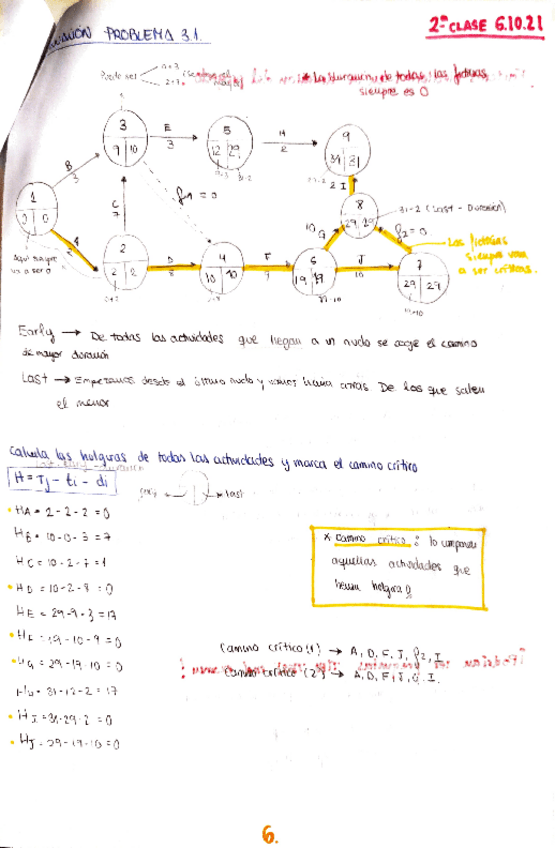 2ª CLASE 6.10.21
PROBLEMA 3.1.
Puede ser
2+7
* La duracion de todas las ficticias
siempre es 0
3
9 10
E
3
5
12 29
H
2
9
31 31
B
3
C
7
f1 = 0
2 I
8
29 29
31-2 (Last - Duración)
1
0 0
A
2
10 G
f2 = 0
Las ficticias
siempre van
a ser críticas.
Aquí siempre
va a ser 0
2
2 2
D
8
4
10 10
F
9
6
19 19
J
10
7
29 29
Early → De todas las actividades que llegan a un nudo se coge el camino
de mayor duración
Last → Empezamos desde el último nudo y vamos hacia atrás. De los que salen
el menor
Calcula las holguras de todas las actividades y marca el camino crítico
H = Tj - ti - di
Early
last
HA = 2-2-2 = 0
HB = 10-0-3 = 7
HC = 10-2-7 = 1
HD = 10-2-8 = 0
HE = 29-9-3 = 17
HF = 19-10-9 = 0
HG = 29-19-10 = 0
HH = 31-12-2 = 17
HI = 31-29-2 = 0
HJ = 29-19-10 = 0
* Camino crítico: lo componen
aquellas actividades que
tienen holgura 0
Camino crítico (1) → A, D, F, J, f2, I
Camino crítico (2) → A, D, F, G, I.
6.